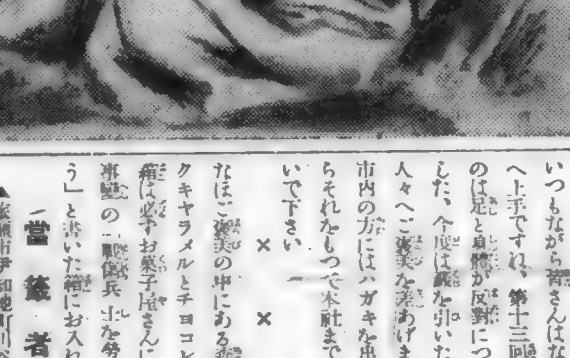 いつもながら皆さんはな
へ上手ですね、第十三回
のは足と身體が反對につ
した、今度は籤を引いた
人々へご褒美を差あげま
市内の方にはハガキを出
らそれをもつて本社まで
いで下さい
× ×
なほご褒美の中にある
クキヤラメルとチヨコレ
箱は必ずお菓子屋さんに
事變の 傷兵士を勞
う」と書いた箱にお入れ
當籤者
▲ 市伊 町